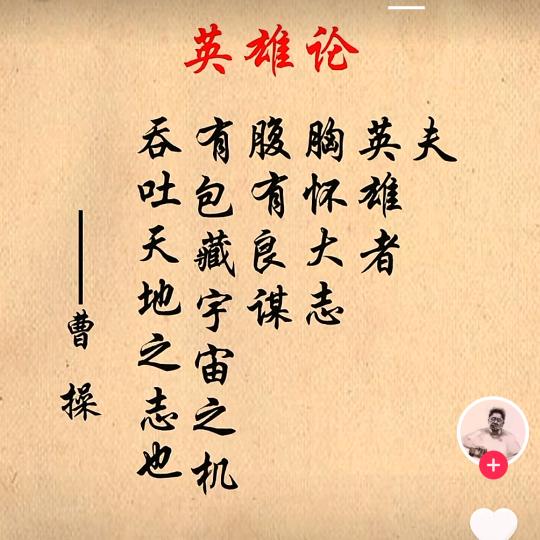 英雄论
夫
英雄者
胸怀大志
腹有良谋
有包藏宇宙之机
吞吐天地之志也
——曹操